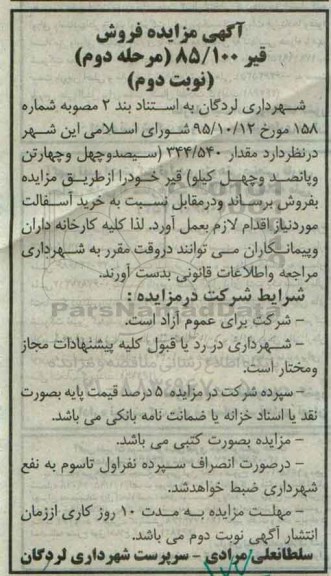 آگهی مزایده فروش
قیر ۸۵/۱۰۰ (مرحله دوم)
(نوبت دوم)
شهرداری لردگان به استناد بند ۲ مصوبه شماره
۱۵۸ مورخ ۹۵/۱۰/۱۲ شورای اسلامی این شهر
درنظردارد مقدار ۳۴۴/۵۴۰ (سیصدوچهل وچهارتن
وپانصد وچهل کیلو) قیر خودرا ازطریق مزایده
بفروش برساند ودرمقابل نسبت به خرید آسفالت
موردنیاز اقدام لازم بعمل آورد. لذا کلیه کارخانه داران
وپیمانکاران می توانند دروقت مقرر به شهرداری
مراجعه واطلاعات قانونی بدست آورند.
شرایط شرکت درمزایده :
– شرکت برای عموم آزاد است.
– شهرداری در رد یا قبول کلیه پیشنهادات مجاز
ومختار است.
– سپرده شرکت در مزایده ۵ درصد قیمت پایه بصورت
نقد یا اسناد خزانه یا ضمانت نامه بانکی می باشد.
– مزایده بصورت کتبی می باشد.
– درصورت انصراف سپرده نفراول تاسوم به نفع
شهرداری ضبط خواهدشد.
– مهلت مزایده به مدت ۱۰ روز کاری اززمان
انتشار آگهی نوبت دوم می باشد.
سلطانعلی مرادی – سرپرست شهرداری لردگان